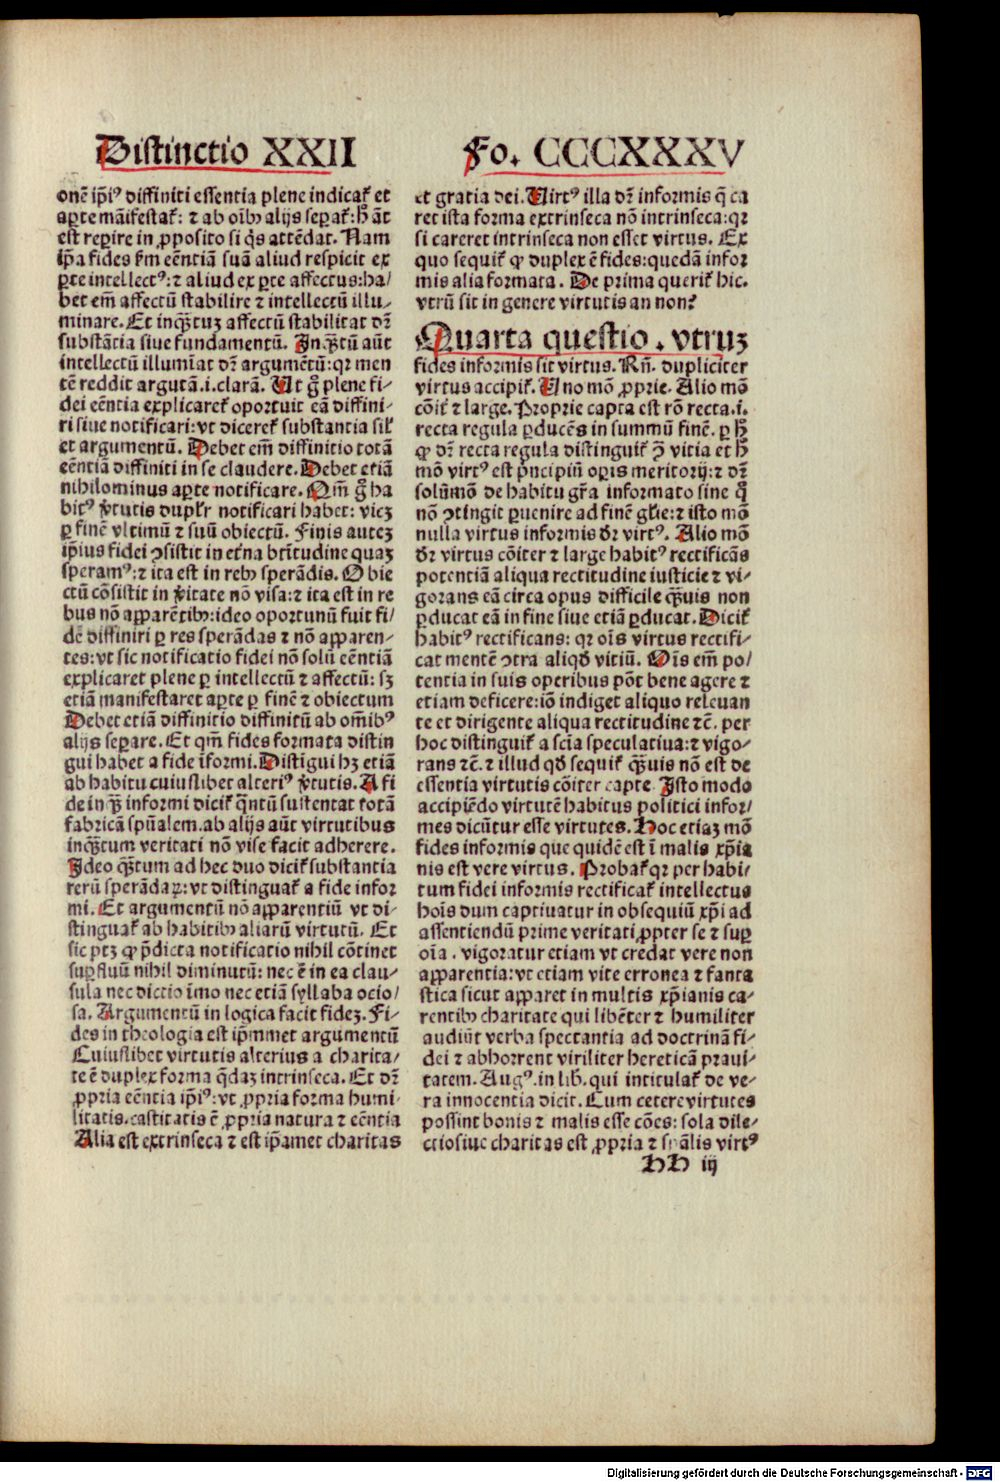 Distinctio XXII
Fo. CCCXXXV
onē ip̄iꝰ diffiniti essentia plene indicat᷑ et
aꝑte māifestat᷑: ⁊ ab oībꝫ alijs seꝑat᷑: h̄ āt
est reꝑire in ꝓposito si q̄s attēdat. Nam
ip̄a fides ẜm eēntiā suā aliud respicit ex
ꝑte intellectꝰ: ⁊ aliud ex ꝑte affectus: ha⸗
bet em̄ affectū stabilire ⁊ intellectū illu⸗
minare. Et inq̄ꝫtuꝫ affectū stabilitat dr̄
substātia siue fundamentū. Inq̄ꝫtū aūt
intellectū illumīat dr̄ argumētū: qꝛ men
tē reddit argutā .i. clarā. Ut g̊ plene fi⸗
dei eēntia explicaret᷑ oportuit eā diffini⸗
ri siue notificari: vt diceret᷑ substantia sil᷑
et argumentū. Debet em̄ diffinitio totā
eēntiā diffiniti in se claudere. Debet etiā
nihilominus aꝑte notificare. Qm̄ g̊ ha
bitꝰ v̓tutis dupl᷑r notificari habet: vicꝫ
ꝑ finē vltimū ⁊ suū obiectū. Finis auteꝫ
ip̄ius fidei ꝯsistit in et̓na btītudine quaꝫ
speramꝰ: ⁊ ita est in rebꝫ sperādis. Obie
ctū cōsistit in v̓itate nō visa: ⁊ ita est in re
bus nō apparētibꝫ: ideo oportunū fuit fi⸗
dē diffiniri ꝑ res sperādas ⁊ nō apparen⸗
tes: vt sic notificatio fidei nō solū eēntiā
explicaret plene ꝑ intellectū ⁊ affectū: sꝫ
etiā manifestaret aꝑte ꝑ finē ⁊ obiectum
Debet etiā diffinitio diffinitū ab om̄ibꝰ
alijs seꝑare. Et qm̄ fides formata distin
gui habet a fide īformi. Distīgui hꝫ etiā
ab habitu cuiuslibet alteriꝰ v̓tutis. A fi
de in q̄ꝫ informi dicit᷑ q̄ntū sustentat totā
fabricā spūalem. ab alijs aūt virtutibus
inq̄ꝫtum veritati nō vise facit adherere.
Ideo q̄ꝫtum ad hec duo dicit᷑ substantia
rerū sperādaꝝ: vt distinguat᷑ a fide infor
mi. Et argumentū nō apparentiū vt di⸗
stinguat᷑ ab habitibꝫ aliarū virtutū. Et
sic ptꝫ ꝙ p̄dicta notificatio nihil cōtinet
suꝑfluū nihil diminutū: nec ē in ea clau⸗
sula nec dictio īmo nec etiā syllaba ocio⸗
sa. Argumentū in logica facit fideꝫ. Fi⸗
des in theologia est ip̄mmet argumentū
Cuiuslibet virtutis alterius a charita⸗
te ē duplex forma q̄daꝫ intrinseca. Et dr̄
ꝓpria eēntia ip̄iꝰ: vt ꝓpria forma humi⸗
litatis. castitatis ē ꝓpria natura ⁊ eēntia
Alia est extrinseca ⁊ est ip̄amet charitas
et gratia dei. Uirtꝰ illa dr̄ informis q̄ ca
ret ista forma extrinseca nō intrinseca: qꝛ
si careret intrinseca non esset virtus. Ex
quo sequit᷑ ꝙ duplex ē fides: quedā infor
mis alia formata. De prima querit᷑ hic.
vtrū sit in genere virtutis an non?
Quarta questio. vtruꝫ
fides informis sit virtus. Rn̄. dupliciter
virtus accipit᷑. Uno mō ꝓprie. Alio mō
cōit᷑ ⁊ large. Proprie capta est rō recta .i.
recta regula ꝑducēs in summū finē. ꝑ h̄
ꝙ dr̄ recta regula distinguit᷑ ꝯ̄ vitia et h̄
mō virtꝰ est p̄ncipiū oꝑis meritorij: ⁊ dr̄
solūmō de habitu gr̄a informato sine q̄
nō ꝯtingit ꝑuenire ad finē gl̄ie: ⁊ isto mō
nulla virtus informis d᷑r virtꝰ. Alio mō
d᷑r virtus cōiter ⁊ large habitꝰ rectificās
potentiā aliqua rectitudine iusticie ⁊ vi⸗
gorans eā circa opus difficile q̄ꝫuis non
ꝑducat eā in fine siue etiā ꝑducat. Dicit᷑
habitꝰ rectificans: qꝛ oīs virtus rectifi⸗
cat mentē ꝯtra aliqd̓ vitiū. Oīs em̄ po⸗
tentia in suis operibus pōt bene agere ⁊
etiam deficere: iō indiget aliquo releuan
te et dirigente aliqua rectitudine ⁊c̄. per
hoc distinguit᷑ a scīa speculatiua: ⁊ vigo⸗
rans ⁊c̄. ⁊ illud qd̓ sequit᷑ q̄ꝫuis nō est de
essentia virtutis cōiter capte. Isto modo
accipiēdo virtutē habitus politici infor⸗
mes dicūtur esse virtutes. Hoc etiaꝫ mō
fides informis que quidē est ī malis xp̄ia
nis est vere virtus. Probat᷑ qꝛ per habi⸗
tum fidei informis rectificat᷑ intellectus
hoīs dum captiuatur in obsequiū xp̄i ad
assentiendū prime veritati ꝓpter se ⁊ suꝑ
oīa. vigoratur etiam vt credat vere non
apparentia: vt etiam vite erronea ⁊ fanta
stica sicut apparet in multis xp̄ianis ca⸗
rentibꝫ charitate qui libēter ⁊ humiliter
audiūt verba spectantia ad doctrinā fi⸗
dei ⁊ abhorrent viriliter hereticā praui⸗
tatem. Augꝰ. in lib̄. qui intitulat᷑ de ve⸗
ra innocentia dicit. Cum cetere virtutes
possint bonis ⁊ malis esse cōes: sola dile⸗
ctio siue charitas est ꝓpria ⁊ sp̄alis virtꝰ
HH iij
Digitalisierung gefördert durch die Deutsche Forschungsgemeinschaft - DFG